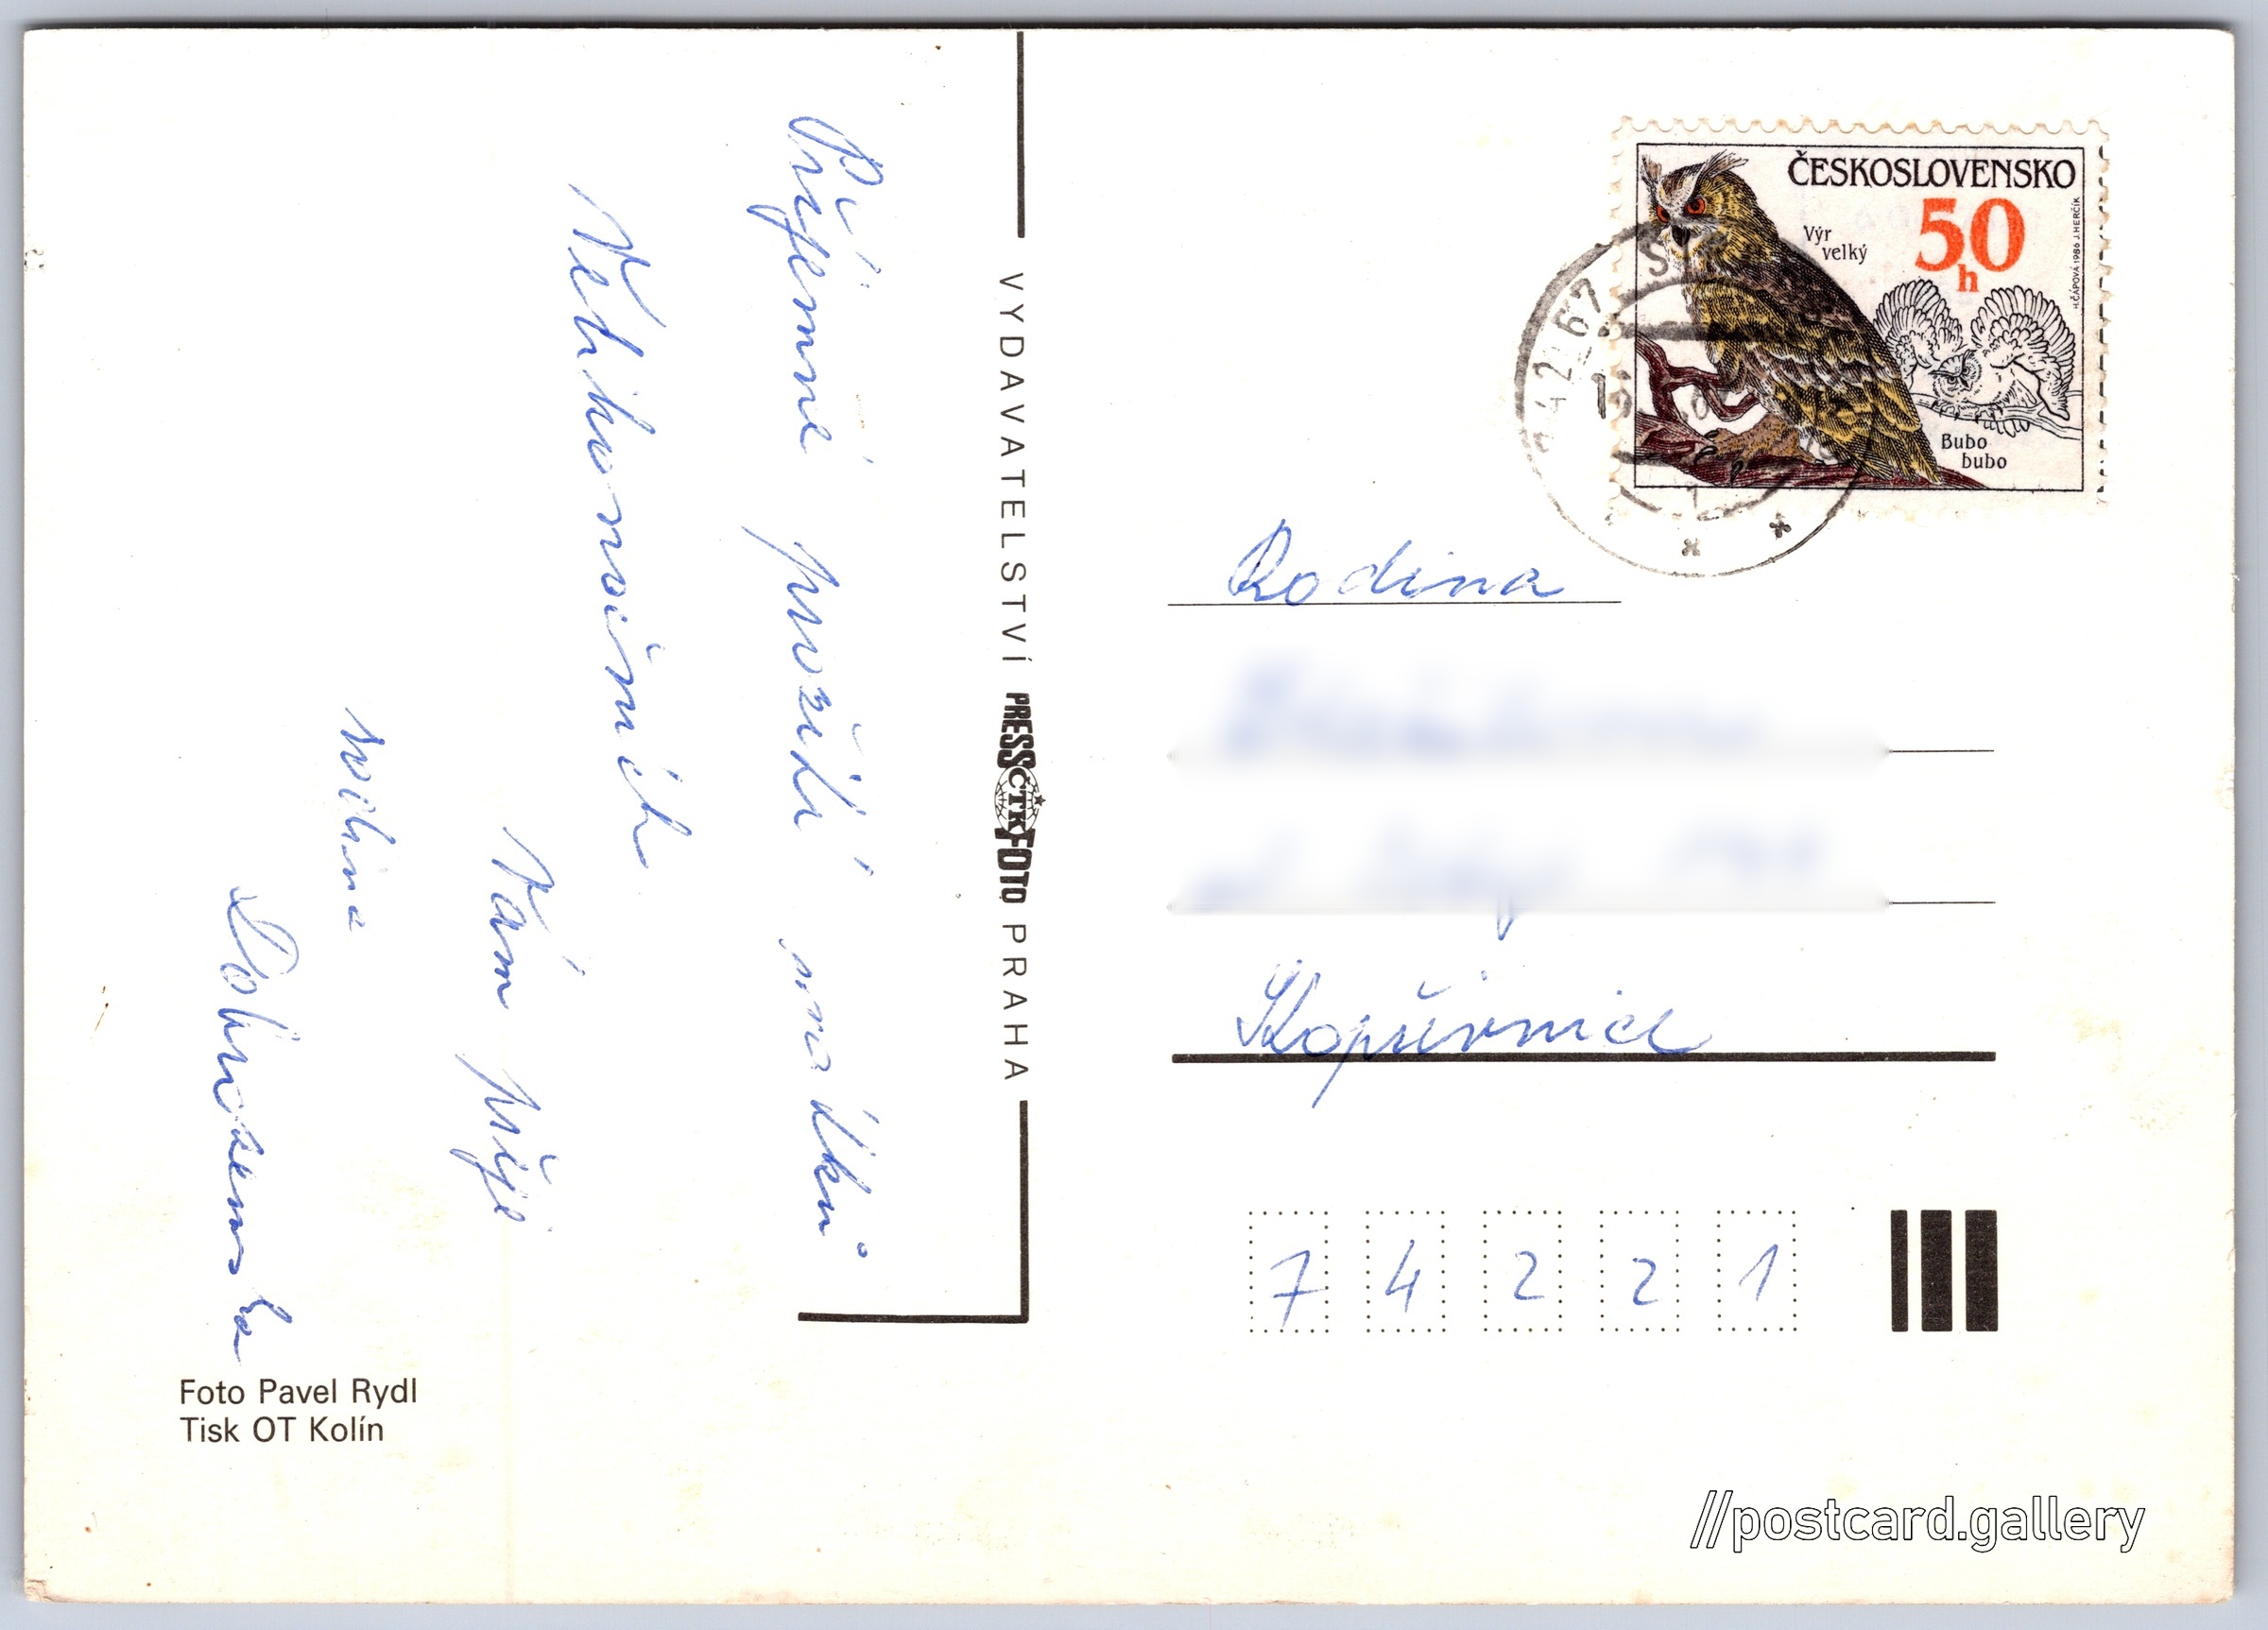 Příjemné prožití svátků
Velikonočních
Vám přeje
rodina
Foto Pavel Rydl
Tisk OT Kolín
VYDAVATELSTVÍ PRESSFOTO ČTK PRAHA
ČESKOSLOVENSKO
50
h
Výr
velký
Bubo
bubo
H.ČÁPOVÁ 1986 J.HERČÍK
742 67
Rodina
Kopřivnice
7 4 2 2 1
//postcard.gallery